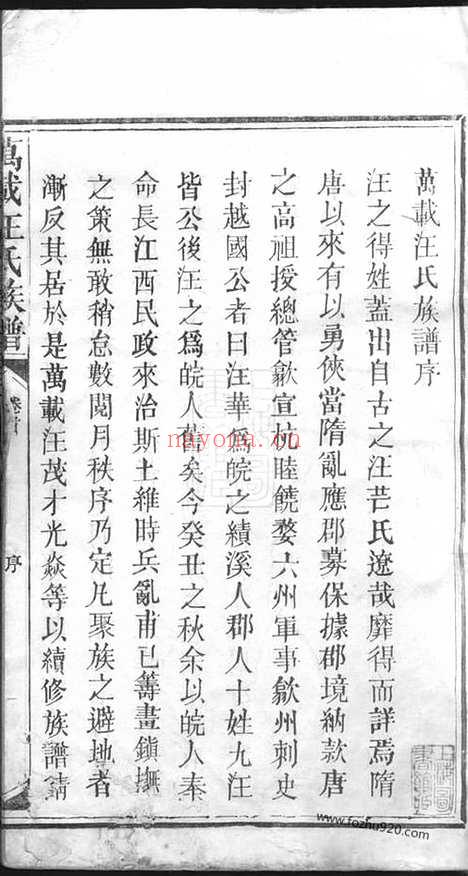 萬載汪氏族譜序
汪之得姓蓋出自古之汪芒氏遼哉靡得而詳焉隋
唐以來有以勇俠當隋亂應郡募保據郡境納款唐
之高祖授總管歙宣杭睦饒婺六州軍事歙州刺史
封越國公者曰汪華爲皖之績溪人郡人十姓九汪
皆公後汪之爲皖人舊矣今癸丑之秋余以皖人奉
命長江西民政來治斯土維時兵亂甫已籌畫鎮撫
之策無敢稍怠數閱月秩序乃定凡聚族之避地者
漸反其居於是萬載汪茂才光焱等以續修族譜請
萬載汪氏族譜
卷首
序
nayona.cn
www.fozhu920.com